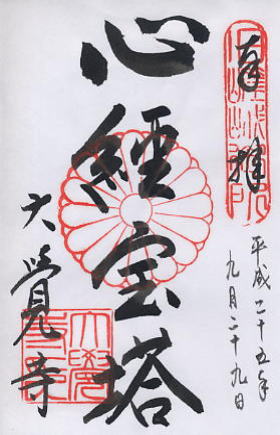 奉拝
平成二十五年
九月二十九日
心經宝塔
大覺寺